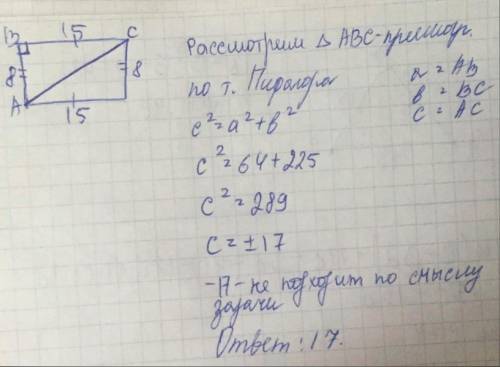 B 15 C
8 8
A 15
Рассмотрим Δ ABC-прямоуг.
по т. Пифагора
a = AB
в = BC
c = AC
c² = a² + в²
c² = 64 + 225
c² = 289
c = ± 17
-17 - не подходит по смыслу
задачи
Ответ: 17.